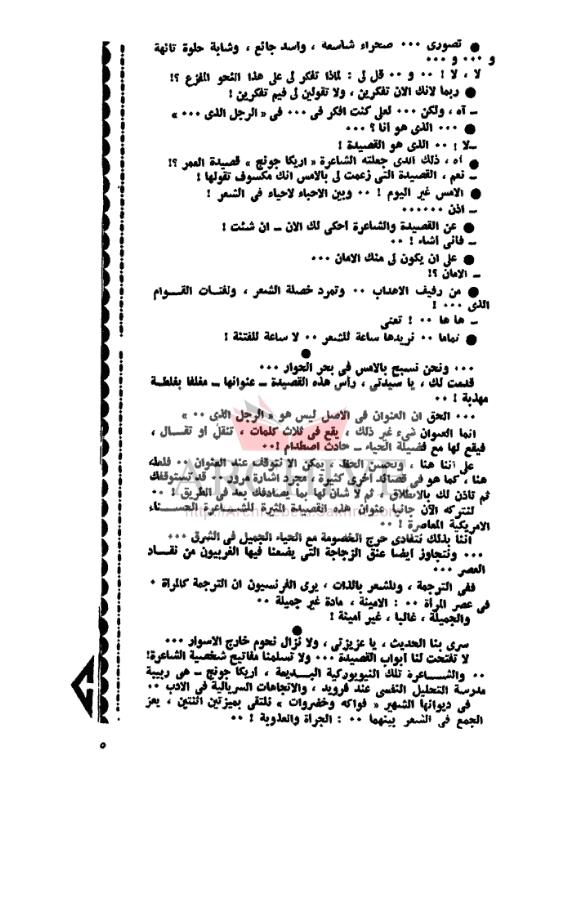 ● تصورى ٠٠٠ صحراء شاسعة ، وأسد جائع ، وشابة حلوة تائهة
و ٠٠٠ و ٠٠٠
لا ، لا ! ٠٠ و ٠٠ قل لى : لماذا تفكر لى على هذا النحو المفزع ؟!
● ربما لانك الان تفكرين ، ولا تقولين لى فيم تفكرين !
ــ آه ، ولكن ٠٠٠ لعلى كنت افكر فى ٠٠٠ فى « الرجل الذى ٠٠٠ »
● ٠٠٠ الذى هو أنا ؟ ٠٠٠
ــ لا ! ٠٠ الذى هو القصيدة !
● آه ، ذلك الذى جعلته الشاعرة « اريكا جونج » قصيدة العمر ؟!
ــ نعم ، القصيدة التى زعمت لى بالامس انك مكسوف تقولها !
● الامس غير اليوم ! ٠٠ وبين الاحباء لاحياء فى الشعر !
ــ اذن ٠٠٠٠٠٠
● عن القصيدة والشاعرة أحكى لك الان ــ ان شئت !
ــ فانى أشاء ! ٠٠
● على ان يكون لى منك الامان ٠٠٠
ــ الامان ؟!
● من رفيف الاهداب ٠٠ وتمرد خصلة الشعر ، ولفتات القـوام
الذى ٠٠٠ !
ــ ها ها ٠٠ ! تعنى
● تماما ٠٠ نريدها ساعة للشعر ٠٠ لا ساعة للفتنة !
●
٠٠٠ ونحن نسبح بالامس فى بحر الحوار ٠٠٠
قدمت لك ، يا سيدتى ، رأس هذه القصيدة ــ عنوانها ــ مغلفا بغلطـة
مهذبة ! ٠٠
٠٠٠ الحق ان العنوان فى الاصل ليس هو « الرجل الذى ٠٠ »
انما العنوان شىء غير ذلك ، يقع فى ثلاث كلمات ، تنقل أو تقـال ،
فيقع لها مع فضيلة الحياء ــ حادث اصطدام ! ٠٠
على اننا هنا ، ولحسن الحظ ، يمكن الا نتوقف عند العنوان ٠٠ فلعله
هنا ، كما هو فى قصائد أخرى كثيرة ، مجرد اشارة مرور ٠٠ قد تستوقفك
ثم تأذن لك بالانطلاق ، ثم لا شأن لها بما يصادفك بعد فى الطريق ! ٠٠
لنتركه الآن جانبا عنوان هذه القصيدة المثيرة للشـاعرة الحسـناء
الامريكية المعاصرة ! ٠٠
اننا بذلك نتفادى حرج الخصومة مع الحياء الجميل فى الشرق ٠٠٠
٠٠٠ ونتجاوز ايضا عنق الزجاجة التى يضعنا فيها الغربيون من نقـاد
العصر ٠٠٠
ففى الترجمة ، وللشعر بالذات ، يرى الفرنسيون ان الترجمة كالمرأة ٠
فى عصر المرأة ٠٠ : الامينة ، عادة غير جميلة ٠٠
والجميلة ، غالبا ، غير امينة !
●
سرى بنا الحديث ، يا عزيزتى ، ولا نزال نحوم خارج الاسوار ٠٠٠
لا تفتحت لنا أبواب القصيدة ٠٠٠ ولا تسلمنا مفاتيح شخصية الشاعرة!
٠٠ والشـاعرة تلك النيويوركية البـديعة ، اريكا جونج ــ هى ربيبة
مدرسة التحليل النفسى عند فرويد ، والاتجاهات السريالية فى الادب ٠٠
فى ديوانها الشهير « فواكه وخضروات » نلتقى بميزتين اثنتين ، يعز
الجمع فى الشعر بينهما ٠٠ : الجرأة والعذوبة ! ٠٠
٥
ARCHIVE